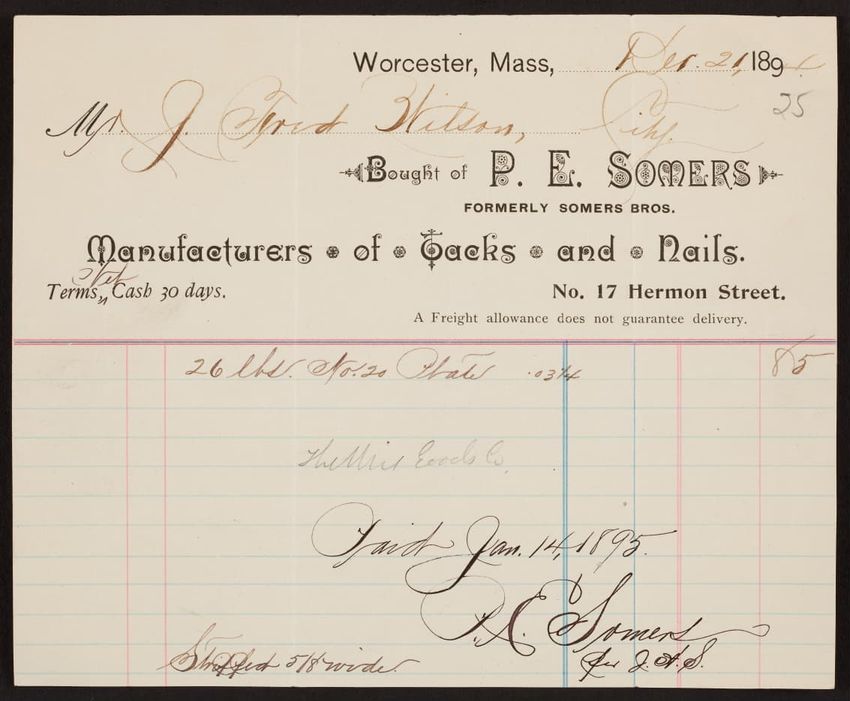 Worcester, Mass, Dec. 21, 1894
25
Mr. J. Fred Wilson, City.
Bought of P. E. SOMERS
FORMERLY SOMERS BROS.
Manufacturers of Tacks and Nails.
Terms, Net Cash 30 days.
No. 17 Hermon Street.
A Freight allowance does not guarantee delivery.
26 lbs. No. 20 Plate .03 1/4 85
Goods Co.
Paid Jan. 14, 1895.
P. E. Somers
Per J. A. S.
5/8 wide